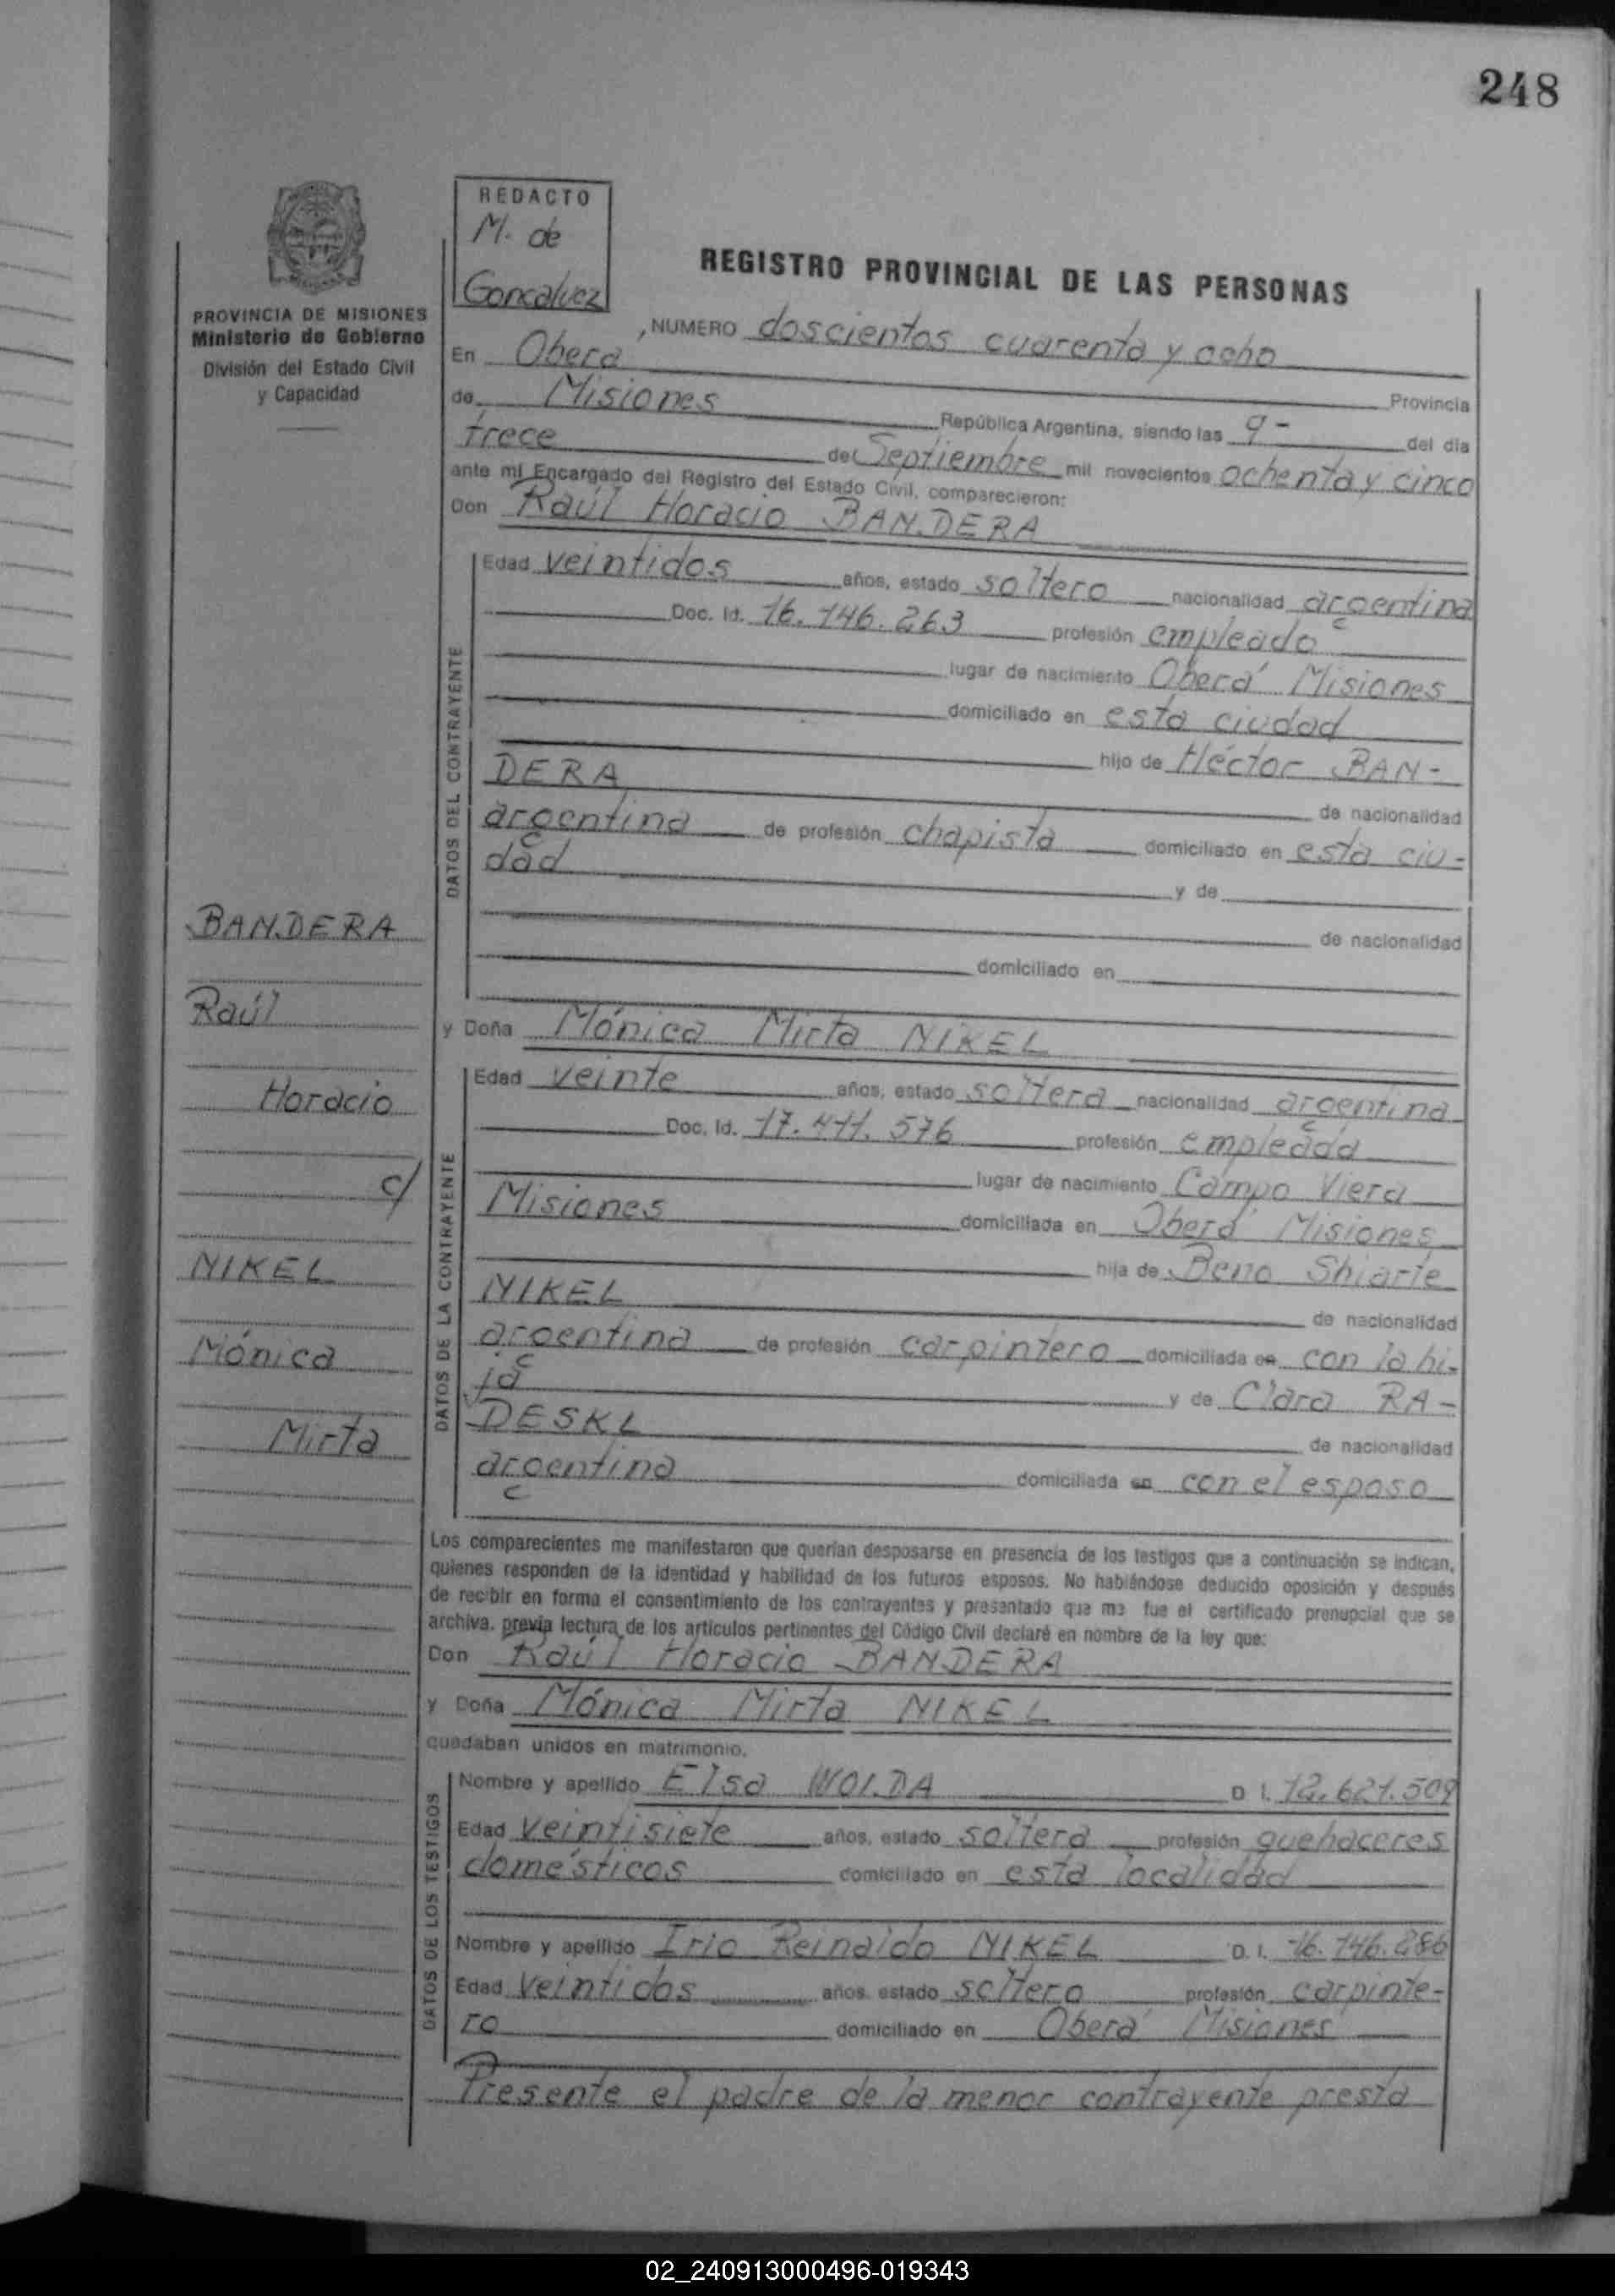 248
REDACTO
M. de
Goncalvez
PROVINCIA DE MISIONES
Ministerio de Gobierno
División del Estado Civil
y Capacidad
REGISTRO PROVINCIAL DE LAS PERSONAS
NUMERO doscientos cuarenta y ocho
En Oberá
Provincia
de Misiones República Argentina, siendo las 9- del día
trece de Septiembre mil novecientos ochenta y cinco
ante mí Encargado del Registro del Estado Civil, comparecieron:
Don Raúl Horacio BANDERA
DATOS DEL CONTRAYENTE
Edad veintidos años, estado soltero nacionalidad argentina
Doc. Id. 16.146.263 profesión empleado
lugar de nacimiento Oberá Misiones
domiciliado en esta ciudad
hijo de Héctor BAN-
DERA de nacionalidad
argentina de profesión chapista domiciliado en esta ciu-
dad y de
de nacionalidad
domiciliado en
y Doña Mónica Mirta NIKEL
DATOS DE LA CONTRAYENTE
Edad veinte años, estado soltera nacionalidad argentina
Doc. Id. 17.411.576 profesión empleada
lugar de nacimiento Campo Viera
Misiones domiciliada en Oberá Misiones
hija de Beno
NIKEL de nacionalidad
argentina de profesión carpintero domiciliada en con la hi-
ja y de Clara RA-
DESKL de nacionalidad
argentina domiciliada en con el esposo
BANDERA
Raúl
Horacio
c/
NIKEL
Mónica
Mirta
Los comparecientes me manifestaron que querían desposarse en presencia de los testigos que a continuación se indican,
quienes responden de la identidad y habilidad de los futuros esposos. No habiéndose deducido oposición y después
de recibir en forma el consentimiento de los contrayentes y presentado que me fue el certificado prenupcial que se
archiva, previa lectura de los artículos pertinentes del Código Civil declaré en nombre de la ley que:
Don Raúl Horacio BANDERA
y Doña Mónica Mirta NIKEL
quedaban unidos en matrimonio.
DATOS DE LOS TESTIGOS
Nombre y apellido Elsa D. I. 12.621.509
Edad veintisiete años, estado soltera profesión quehaceres
domésticos domiciliado en esta localidad
Nombre y apellido Irio Reinaldo NIKEL D. I. 16.146.286
Edad veintidos años, estado soltero profesión carpinte-
ro domiciliado en Oberá Misiones
Presente el padre de la menor contrayente presta
02_240913000496-019343